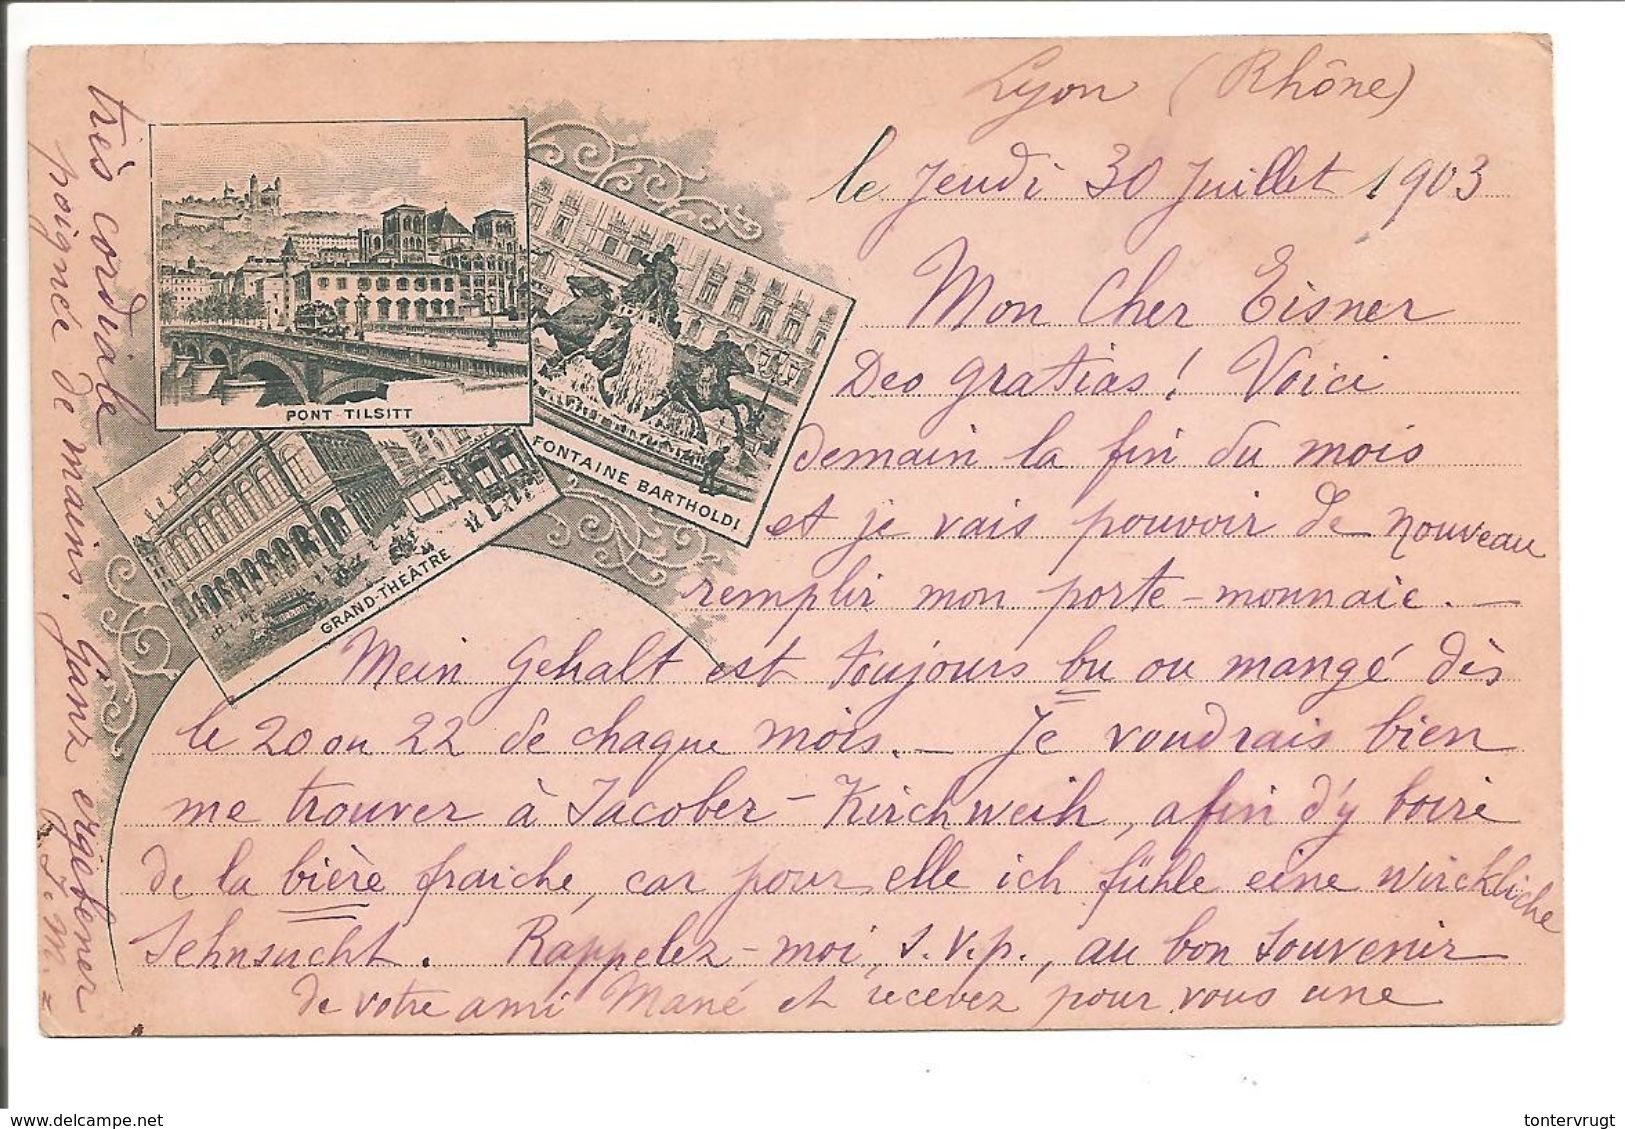 Lyon (Rhône)
le Jeudi 30 Juillet 1903
Mon Cher Eisner
Deo gratias! Voici
demain la fin du mois
et je vais pouvoir de nouveau
remplir mon porte-monnaie. —
Mein Gehalt est toujours bu ou mangé dès
le 20 ou 22 de chaque mois. — Je voudrais bien
me trouver à Jacober-Kirchweih, afin d'y boire
de la bière fraiche, car pour elle ich fühle eine wirckliche
Sehnsucht. Rappelez-moi, s.v.p., au bon souvenir
de votre ami Mané et recevez pour vous une
très cordiale
poignée de mains. Ganz ergebener
J. M. =
PONT TILSITT
FONTAINE BARTHOLDI
GRAND-THEÂTRE
© delcampe.net
tontervrugt